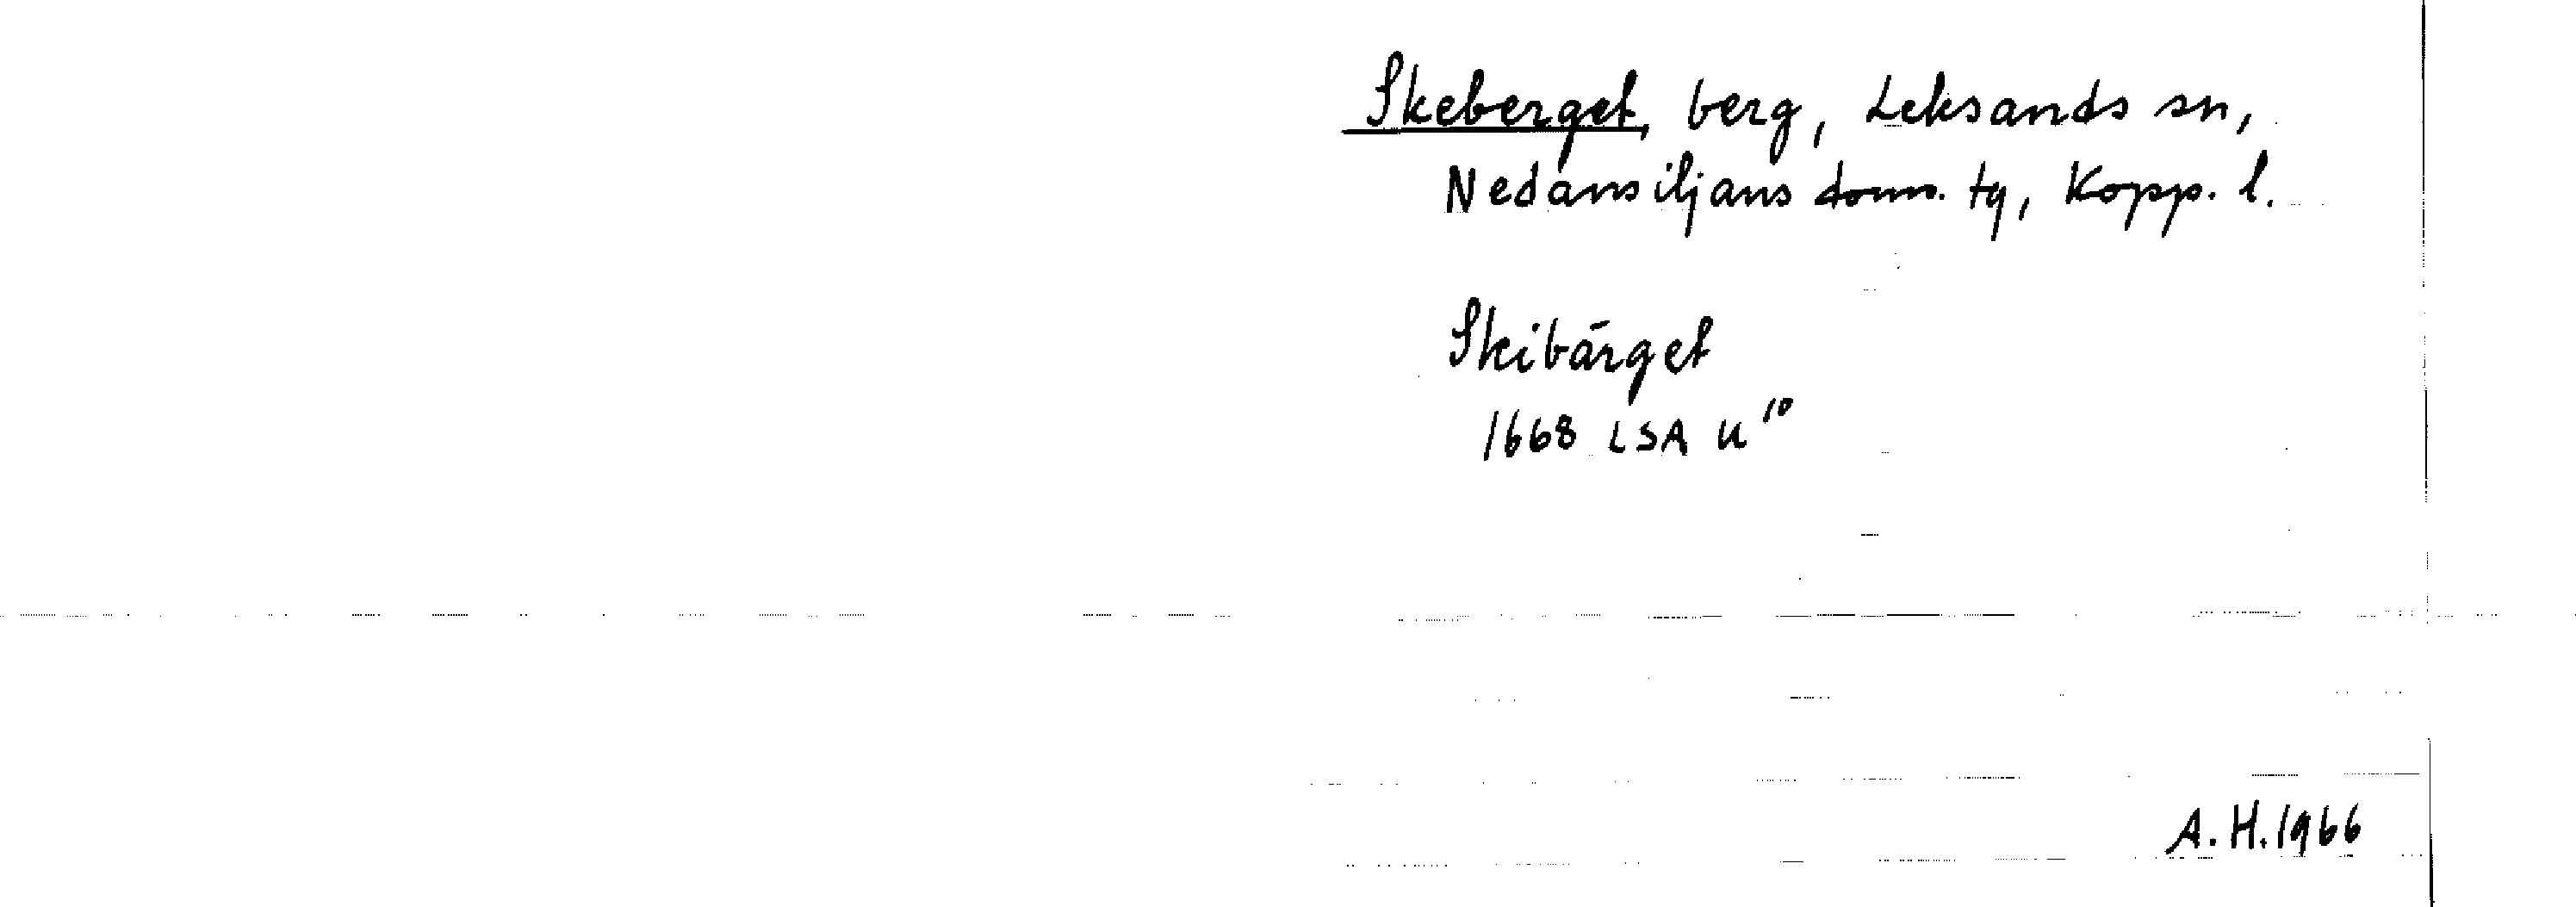 Skeberget, berg, Leksands sn,
Nedansiljans doms. tg, Kopp. l.
Skibärget
1668 LSA U¹⁰
A.H.1966